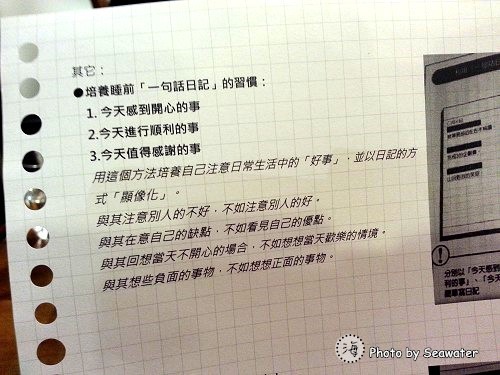 其它：
●培養睡前「一句話日記」的習慣：
1. 今天感到開心的事
2.今天進行順利的事
3.今天值得感謝的事
用這個方法培養自己注意日常生活中的「好事」，並以日記的方
式「顯像化」。
與其注意別人的不好，不如注意別人的好。
與其在意自己的缺點，不如看見自己的優點。
與其回想當天不開心的場合，不如想想當天歡樂的情境。
與其想些負面的事物，不如想想正面的事物。
分別以「今天感
利的事」、「今天
簡單寫日記
海 Photo by Seawater